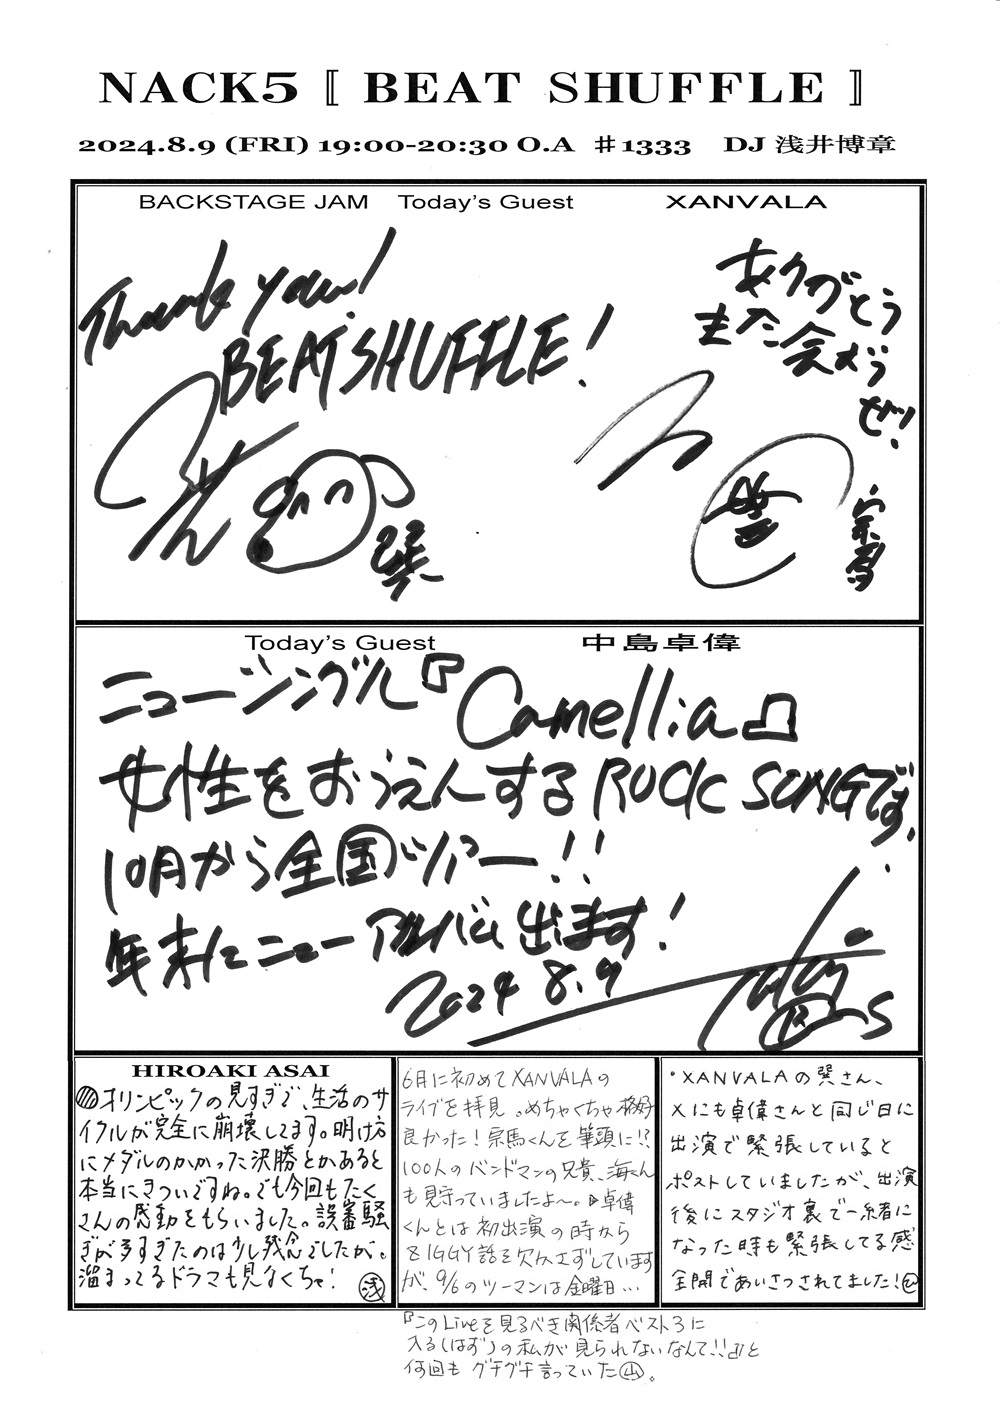 NACK5 〚 BEAT SHUFFLE 〛
2024.8.9 (FRI) 19:00-20:30 O.A ＃1333 DJ 浅井博章
BACKSTAGE JAM Today's Guest XANVALA
Thank you!
BEAT SHUFFLE!
巽
ありがとう
また会おう
ぜ!
宗馬
Today's Guest 中島卓偉
ニューシングル『Camellia』
女性をおうえんするROCK SONGです!
10月から全国ツアー!!
年末にニューアルバム出ます!
2024 8.9
HIROAKI ASAI
オリンピックの見すぎで、生活のサ
イクルが完全に崩壊してます。明け方
にメダルのかかった決勝とかあると
本当にきついですね。でも今回もたく
さんの感動をもらいました。誤審騒
ぎが多すぎたのは少し残念でしたが。
溜まってるドラマも見なくちゃ! 浅
6月に初めてXANVALAの
ライブを拝見。めちゃくちゃ格好
良かった!宗馬くんを筆頭に!?
100人のバンドマンの兄貴、海くん
も見守っていましたよ〜。▷卓偉
くんとは初出演の時から
BIGGY話を欠かさずしています
が、9/6のツーマンは金曜日…
『このLiveを見るべき関係者ベスト3に
入る(はず)の私が見られないなんて!!』と
何回もグチグチ言っていた山。
・XANVALAの巽さん、
Xにも卓偉さんと同じ日に
出演で緊張していると
ポストしていましたが、出演
後にスタジオ裏で一緒に
なった時も緊張してる感
全開であいさつされてました!